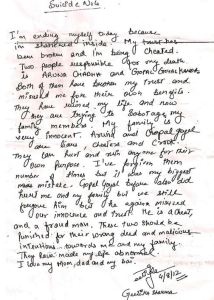 Suicide Note
I'm ending myself today because
I'm shattered inside. My trust has
been broken and I'm being cheated.
Two people responsible for my death
is ARUNA CHADHA and GOPAL GOYAL KANDA.
Both of them have broken my trust and
misused me for their own benefits.
They have ruined my life and now
they are trying to sabotage my
family members. My family is
very innocent. Aruna and Gopal goyal
are liars, cheaters and crook.
They can hurt and ruin any one for their
own purpose. I've forgiven them
number of times but it was my biggest
mistake. Gopal Goyal before also did
hurt me and my family but we still
forgave him. But he again misused
our innocence and trust. He is a cheat,
and a fraud man. These two should be
punished for their wrong deed and malicious
intentions towards me and my family.
They have made life abnormal.
I love my Mom, dad and my bai
4/8/12
Geetika Sharma